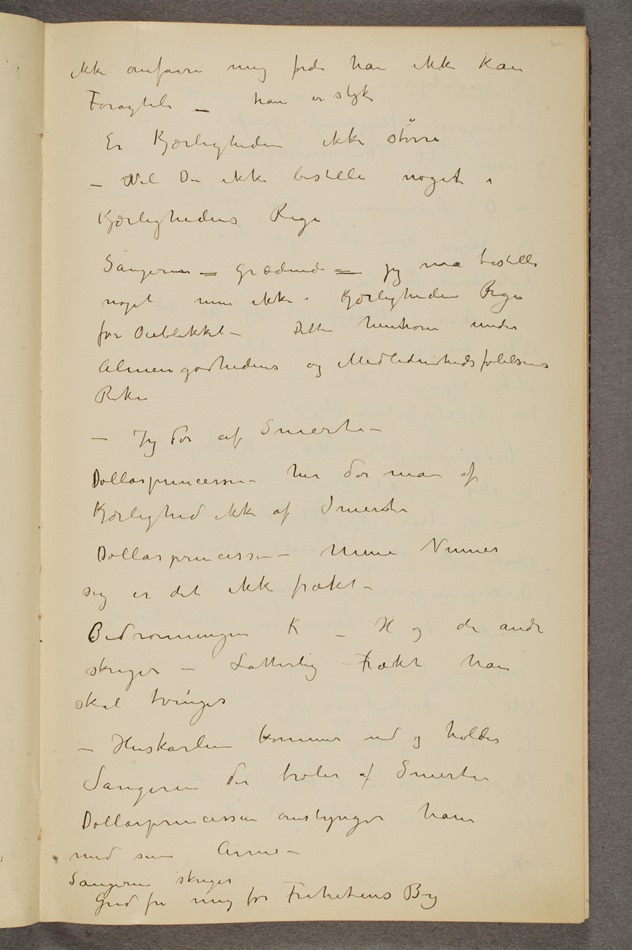 ikke omfavne mig fordi han ikke kan
Foragteli — han er styk
Er Kjærligheden ikke større
— Vil De ikke bestille noget i
Kjærlighedens Rige
Sangeren — grædende — jeg maa bestille
noget men ikke i Kjærligheden Rige
for Øieblikket — Dette henhører under
Almengodhedens og Medlidenhedsfølelsens
Rike
— Jeg dør af Smerte —
Dollarprincessen — her dør man af
Kjærlighed ikke af Smerte
Dollarprincessen — Mine Venner
sig er det ikke frækt —
Bedronningen K — H og de andre
skriger — Latterlig Frækt han
skal tvinges
— Huskarlen kommer ud og holder
Sangeren der brøler af Smerte
Dollarprincessen omslynger ham
med sine Arme —
Sangeren skriger
Gud fri mig for Frihetens By